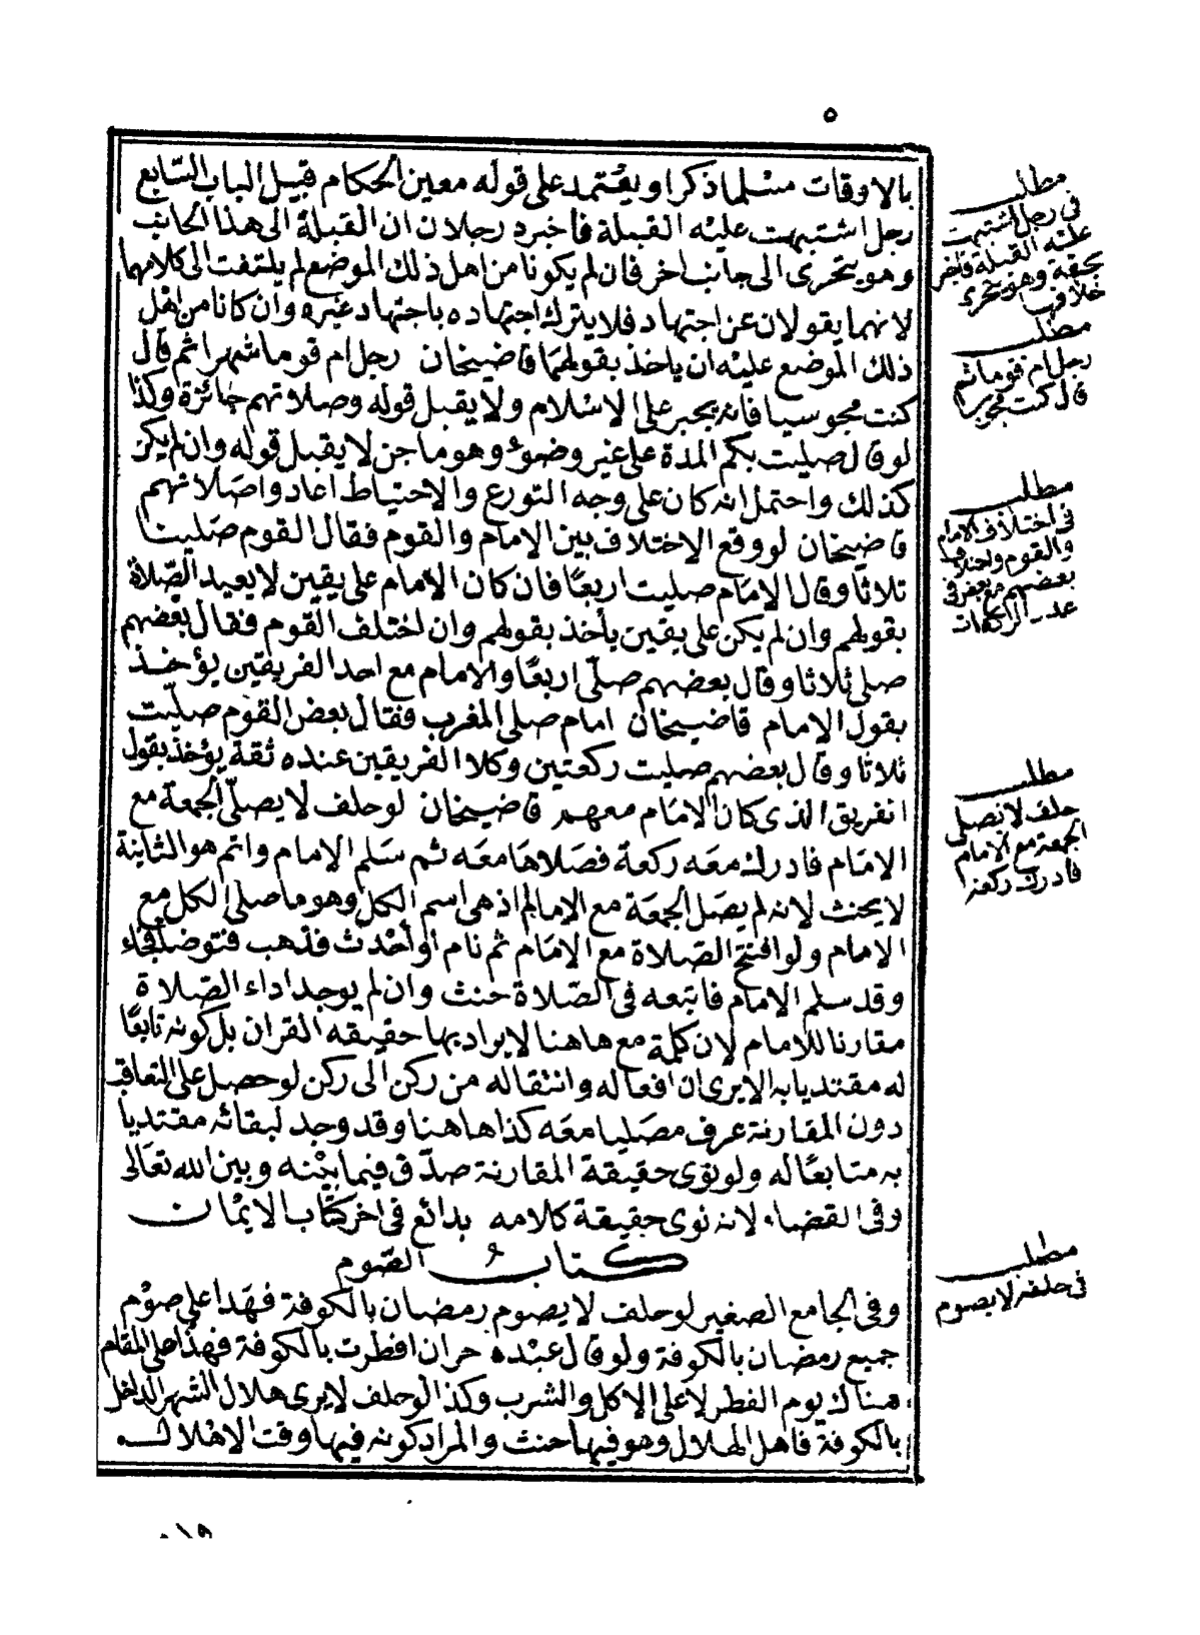 ٥
بالاوقات مسلما ذكرا ويعتمد على قوله معين الحكام قبيل الباب السابع
رجل اشتبهت عليه القبلة فاخبره رجلان ان القبلة الى هذا الجانب
وهو يتحرى الى جانب اخر فان لم يكونا من اهل ذلك الموضع لم يلتفت الى كلامهما
لانهما يقولان عن اجتهاد فلا يترك اجتهاده باجتهاد غيره وان كانا من اهل
ذلك الموضع عليه ان ياخذ بقولهما قاضيخان رجل ام قوما شهرا ثم قال
كنت مجوسيا فانه يجبر على الاسلام ولا يقبل قوله وصلاتهم جائزة وكذا
لو قال صليت بكم المدة على غير وضوء وهو ماجن لا يقبل قوله وان لم يكن
كذلك واحتمل انه كان على وجه التورع والاحتياط اعادوا صلاتهم
قاضيخان لو وقع الاختلاف بين الامام والقوم فقال القوم صلينا
ثلاثا وقال الامام صليت اربعا فان كان الامام على يقين لا يعيد الصلاة
بقولهم وان لم يكن على يقين ياخذ بقولهم وان اختلف القوم فقال بعضهم
صلى ثلاثا وقال بعضهم صلى اربعا والامام مع احد الفريقين يؤخذ
بقول الامام قاضيخان امام صلى المغرب فقال بعض القوم صليت
ثلاثا وقال بعضهم صليت ركعتين وكلا الفريقين عنده ثقة يؤخذ بقول
الفريق الذى كان الامام معهم قاضيخان لو حلف لا يصلى الجمعة مع
الامام فادرك معه ركعة فصلاها معه ثم سلم الامام واتم هو الثانية
لا يحنث لانه لم يصل الجمعة مع الامام اذ هى اسم الكل وهو ما صلى الكل مع
الامام ولو افتتح الصلاة مع الامام ثم نام او احدث فذهب فتوضا فجاء
وقد سلم الامام فاتبعه فى الصلاة حنث وان لم يوجد اداء الصلاة
مقارنا للامام لان كلمة مع هاهنا لا يراد بها حقيقه القران بل كونه تابعا
له مقتديا به الا يرى ان افعاله وانتقاله من ركن الى ركن لو حصل على التعاقب
دون المقارنة عرف مصليا معه كذا هاهنا وقد وجد لبقائه مقتديا
به متابعا له ولو نوى حقيقة المقارنة صدق فيما بينه وبين الله تعالى
وفى القضاء لانه نوى حقيقة كلامه بدائع فى اخر كتاب الايمان
كتاب الصوم
وفى الجامع الصغير لو حلف لا يصوم رمضان بالكوفة فهذا على صوم
جميع رمضان بالكوفة ولو قال عبده حر ان افطرت بالكوفة فهذا على المقام
هناك يوم الفطر لا على الاكل والشرب وكذا لو حلف لا يرى هلال الشهر الداخل
بالكوفة فاهل الهلال وهو فيها حنث والمراد كونه فيها وقت الاهلال
مطلب
فى رجل اشتبهت
عليه القبلة فاخبر
بجهة وهو يتحرى
خلافها
مطلب
رجل ام قوما ثم
قال كنت مجوسيا
مطلب
فى اختلاف الامام
والقوم واختلاف
بعضهم مع بعض فى
عدد الركعات
مطلب
حلف لا يصلى
الجمعة مع الامام
فادرك ركعة
مطلب
فى حلفه لا يصوم